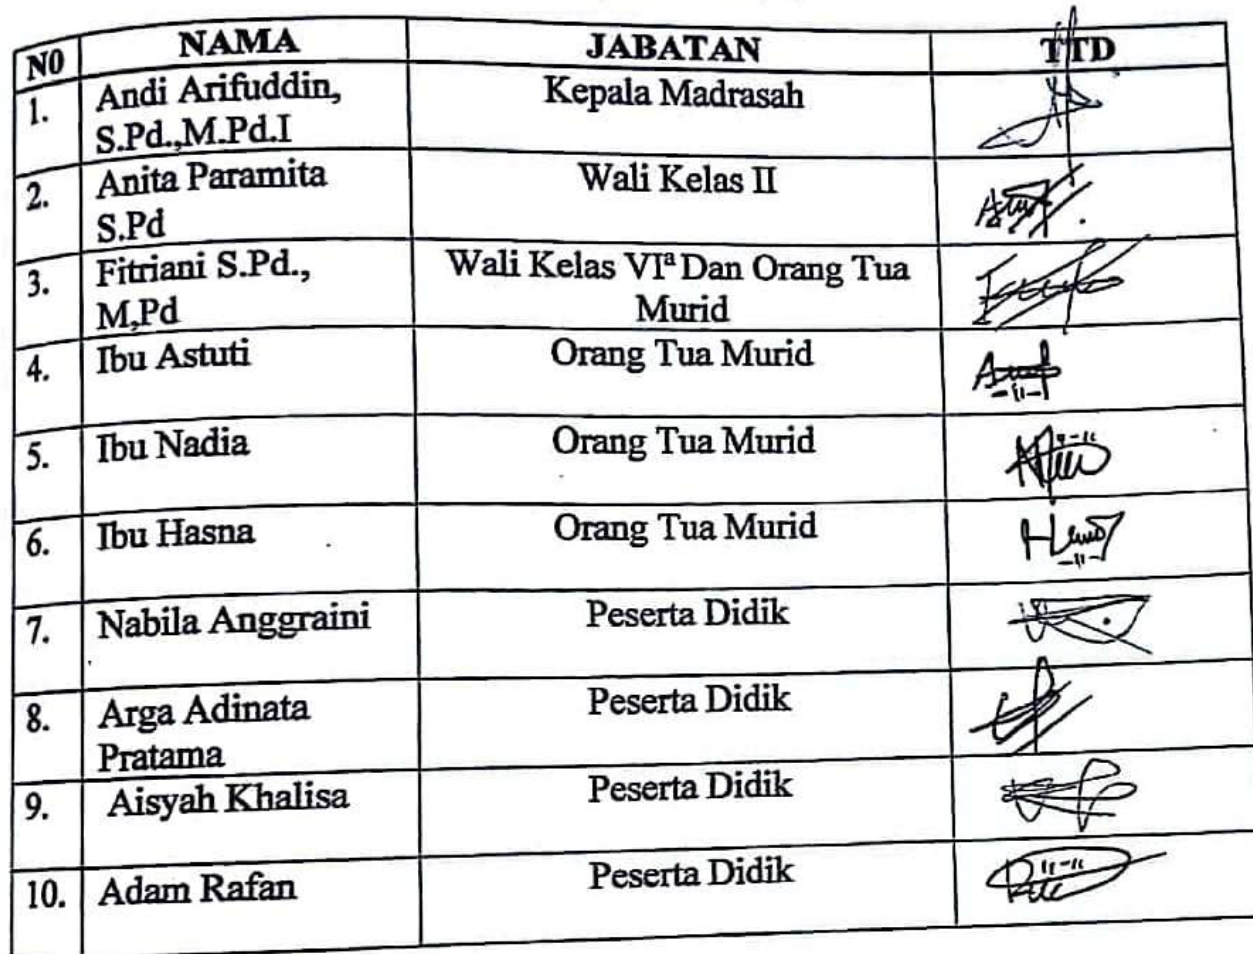 N0 NAMA JABATAN TTD
1. Andi Arifuddin, Kepala Madrasah
S.Pd.,M.Pd.I
2. Anita Paramita Wali Kelas II
S.Pd
3. Fitriani S.Pd., Wali Kelas VIª Dan Orang Tua
M,Pd Murid
4. Ibu Astuti Orang Tua Murid
5. Ibu Nadia Orang Tua Murid
6. Ibu Hasna Orang Tua Murid
7. Nabila Anggraini Peserta Didik
8. Arga Adinata Peserta Didik
Pratama
9. Aisyah Khalisa Peserta Didik
10. Adam Rafan Peserta Didik